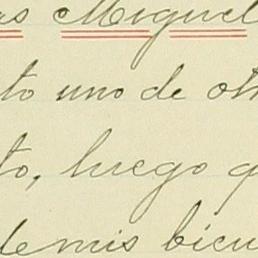 as Miguel
to uno de ot
to, luego q
de mis bien